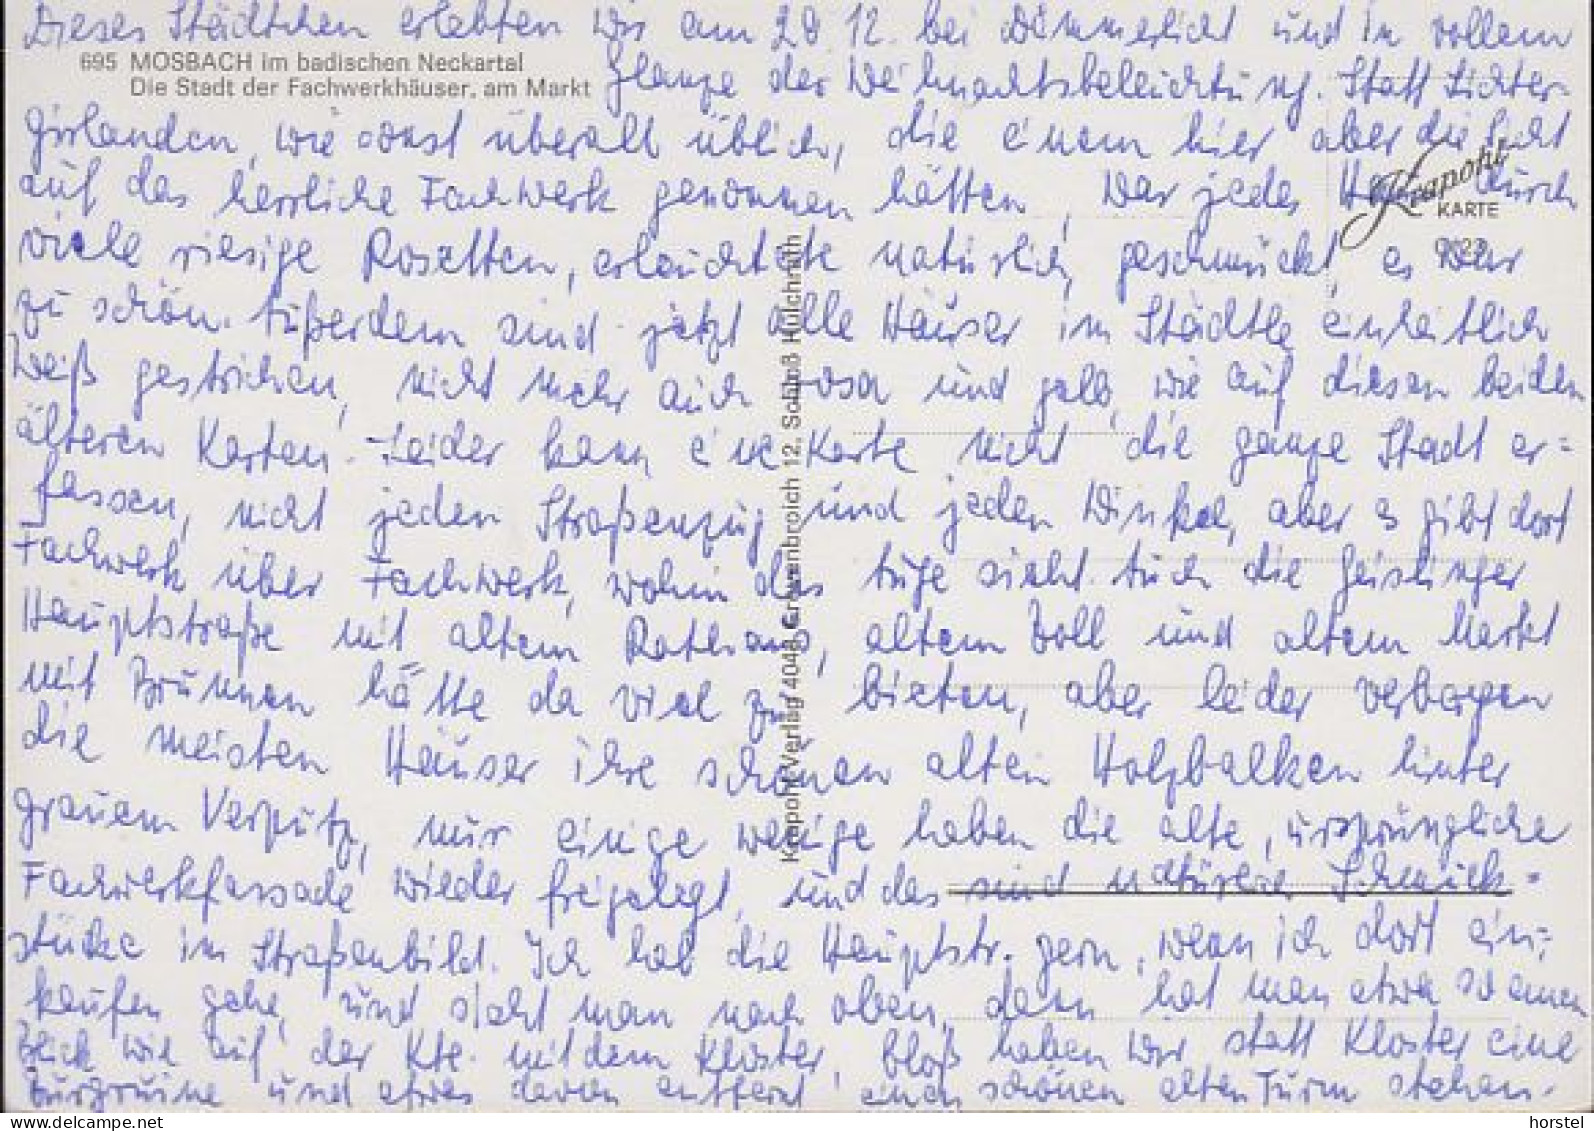 Dieses Städtchen erlebten wir am 28.12. bei Dämmerlicht und in vollem
695 MOSBACH im badischen Neckartal
Die Stadt der Fachwerkhäuser, am Markt
Glanze der Weihnachtsbeleuchtung. Statt Lichter-
girlanden, wie sonst überall üblich, die einem hier aber die Sicht
auf das herrliche Fachwerk genommen hätten, war jedes Haus durch
Krapohl
KARTE
viele riesige Rosetten, erleuchtete natürlich, geschmückt, es war
zu schön. Außerdem sind jetzt alle Häuser im Städtle einheitlich
weiß gestrichen, nicht mehr auch rosa und gelb, wie auf diesen beiden
älteren Karten. Leider kann eine Karte nicht die ganze Stadt er=
fassen, nicht jeden Straßenzug und jeden Winkel, aber es gibt dort
Fachwerk über Fachwerk, wohin das Auge sieht. Auch die Geislinger
Hauptstraße mit altem Rathaus, altem Zoll und altem Markt
mit Brunnen hätte da viel zu bieten, aber leider verbergen
die meisten Häuser ihre schönen alten Holzbalken hinter
grauem Verputz, nur einige wenige haben die alte, ursprüngliche
Fachwerkfassade wieder freigelegt, und das sind natürlich Schmuck=
stücke im Straßenbild. Ich hab die Hauptstr. gern, wenn ich dort ein=
kaufen gehe, und sieht man nach oben, dann hat man etwa so einen
Blick wie auf der Kte. mit dem Kloster, bloß haben wir statt Kloster eine
Burgruine und etwas davon entfernt einen schönen alten Turm stehen.
Krapohl-Verlag 4048 Grevenbroich 12, Schloß Hülchrath
horstel